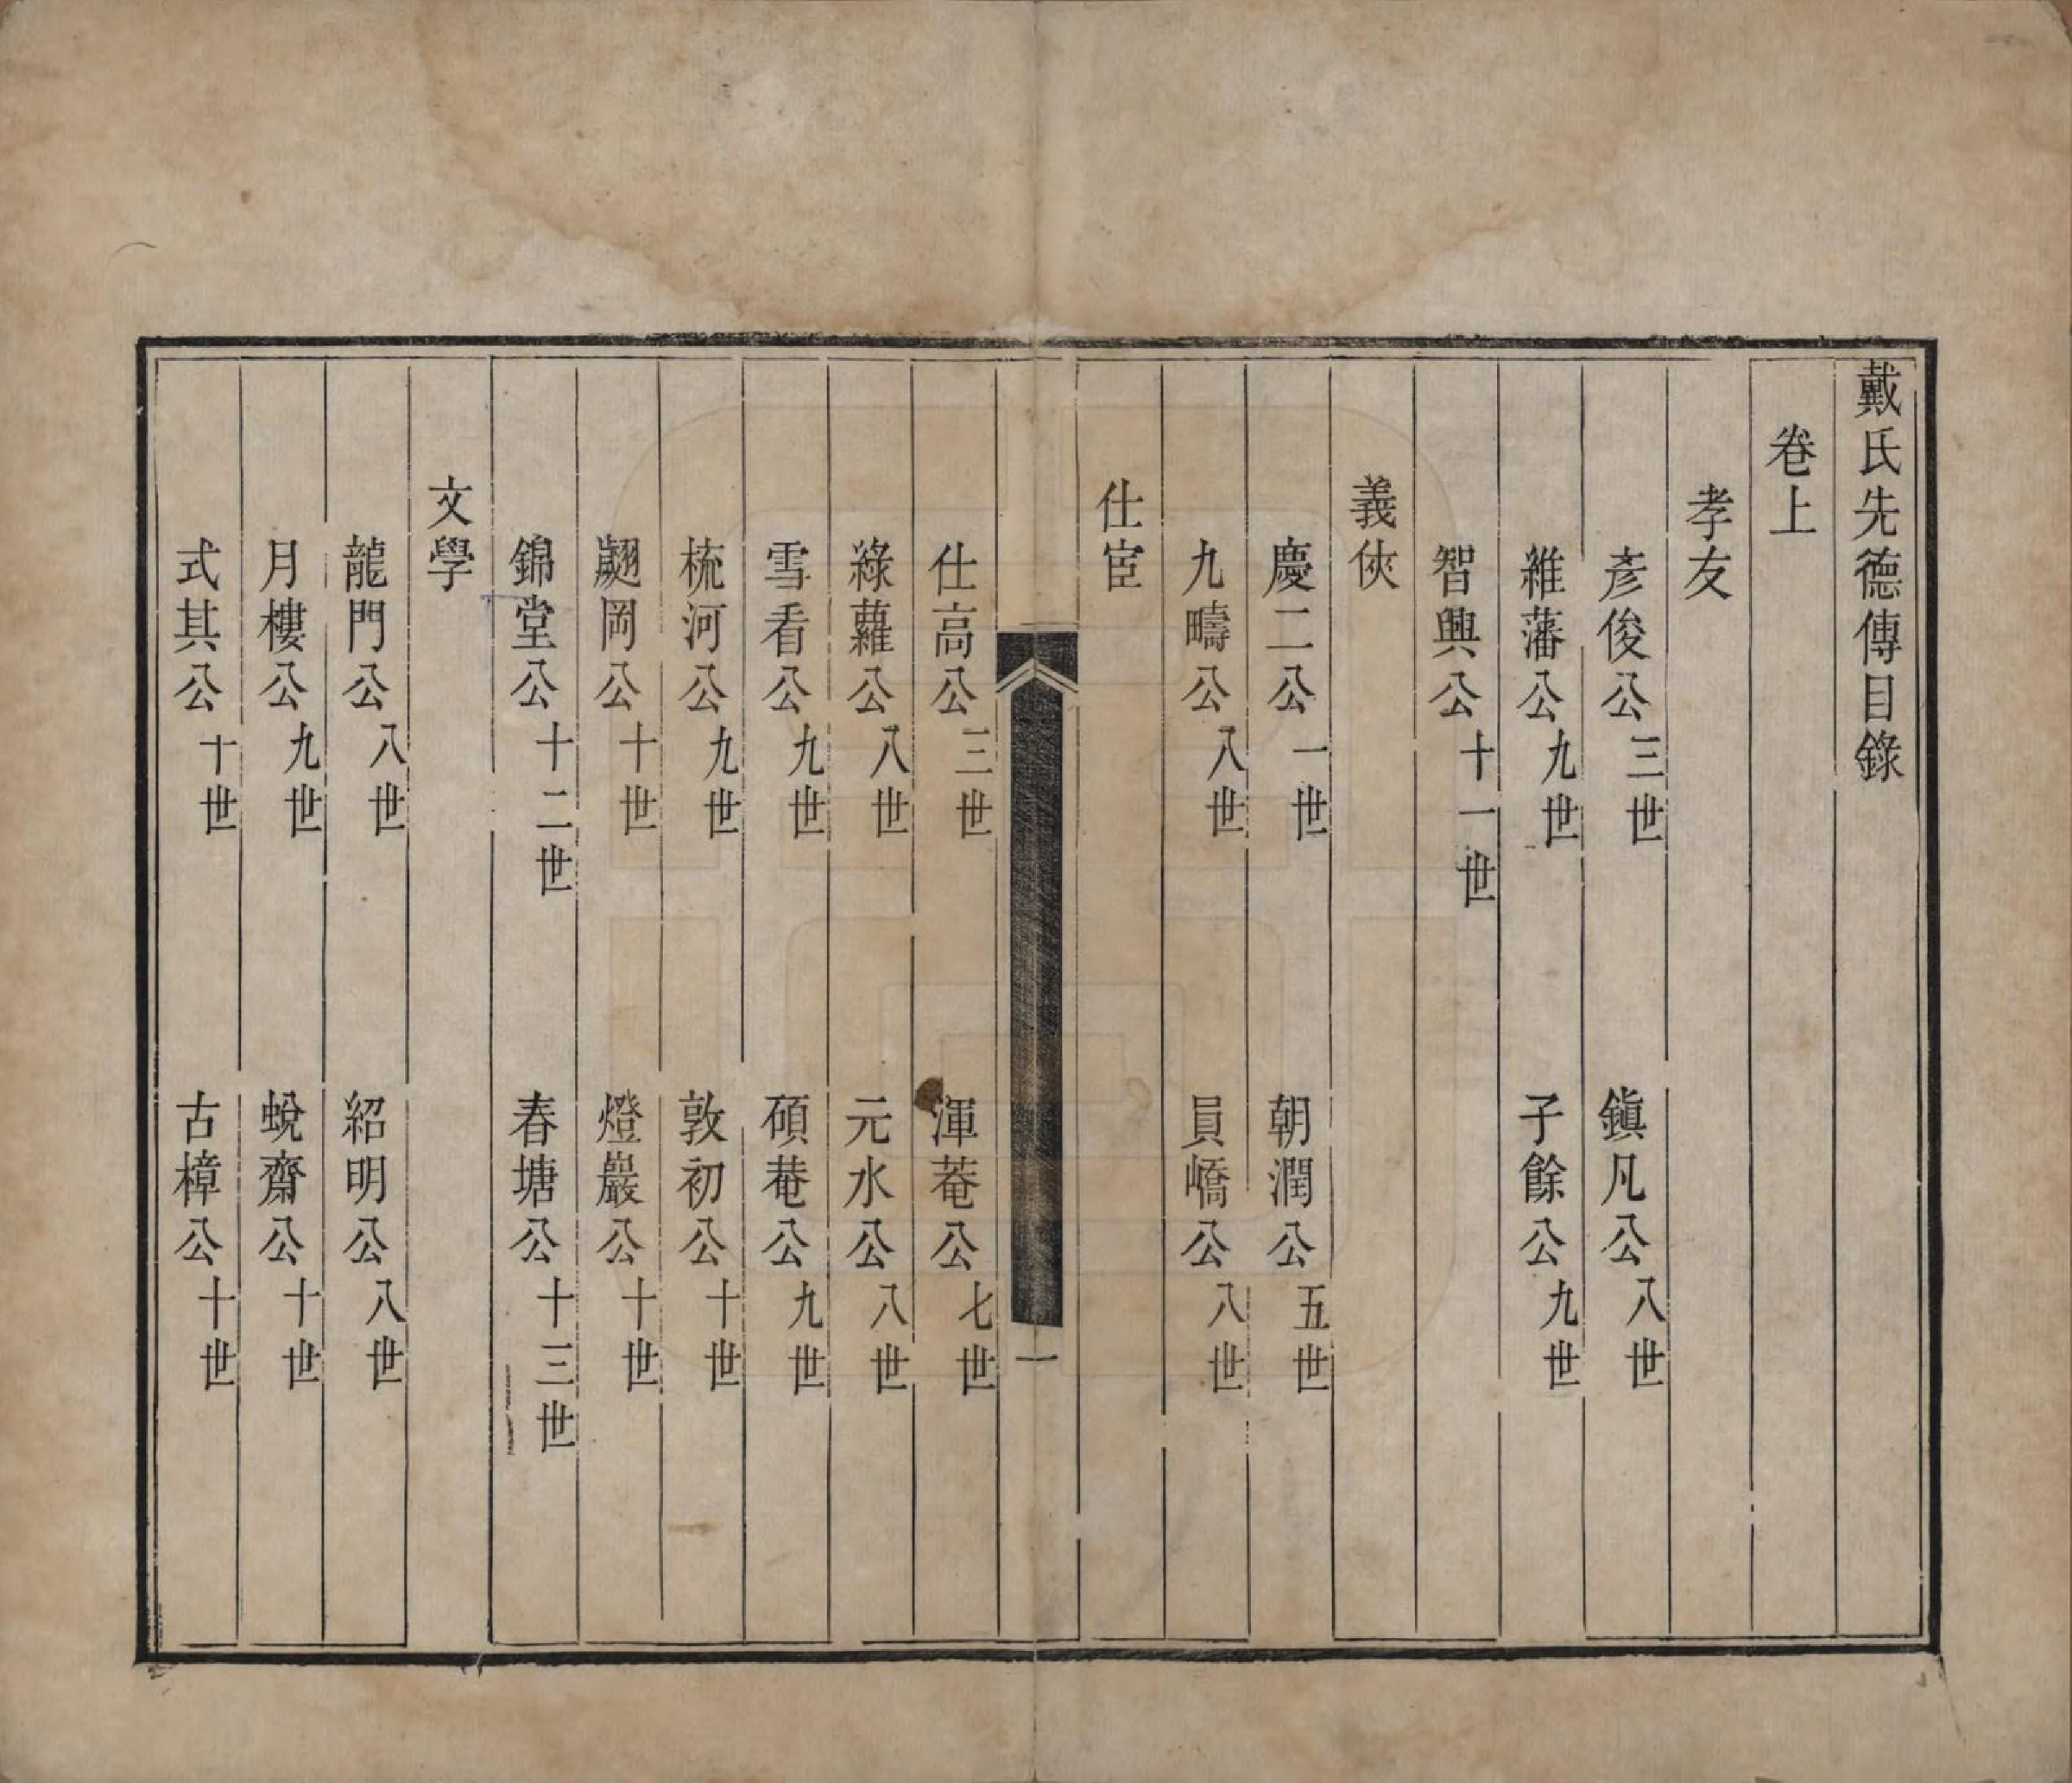 戴氏先德傳目錄
卷上
孝友
彥俊公三世　鎮凡公八世
維藩公九世　子餘公九世
智興公十一世
義俠
慶二公一世　朝潤公五世
九疇公八世　員嶠公八世
仕宦
一
仕高公三世　渾菴公七世
綠蘿公八世　元水公八世
雪看公九世　碩菴公九世
梳河公九世　敦初公十世
岡公十世　燈巖公十世
錦堂公十二世　春塘公十三世
文學
龍門公八世　紹明公八世
月樓公九世　蛻齋公十世
式其公十世　古樟公十世